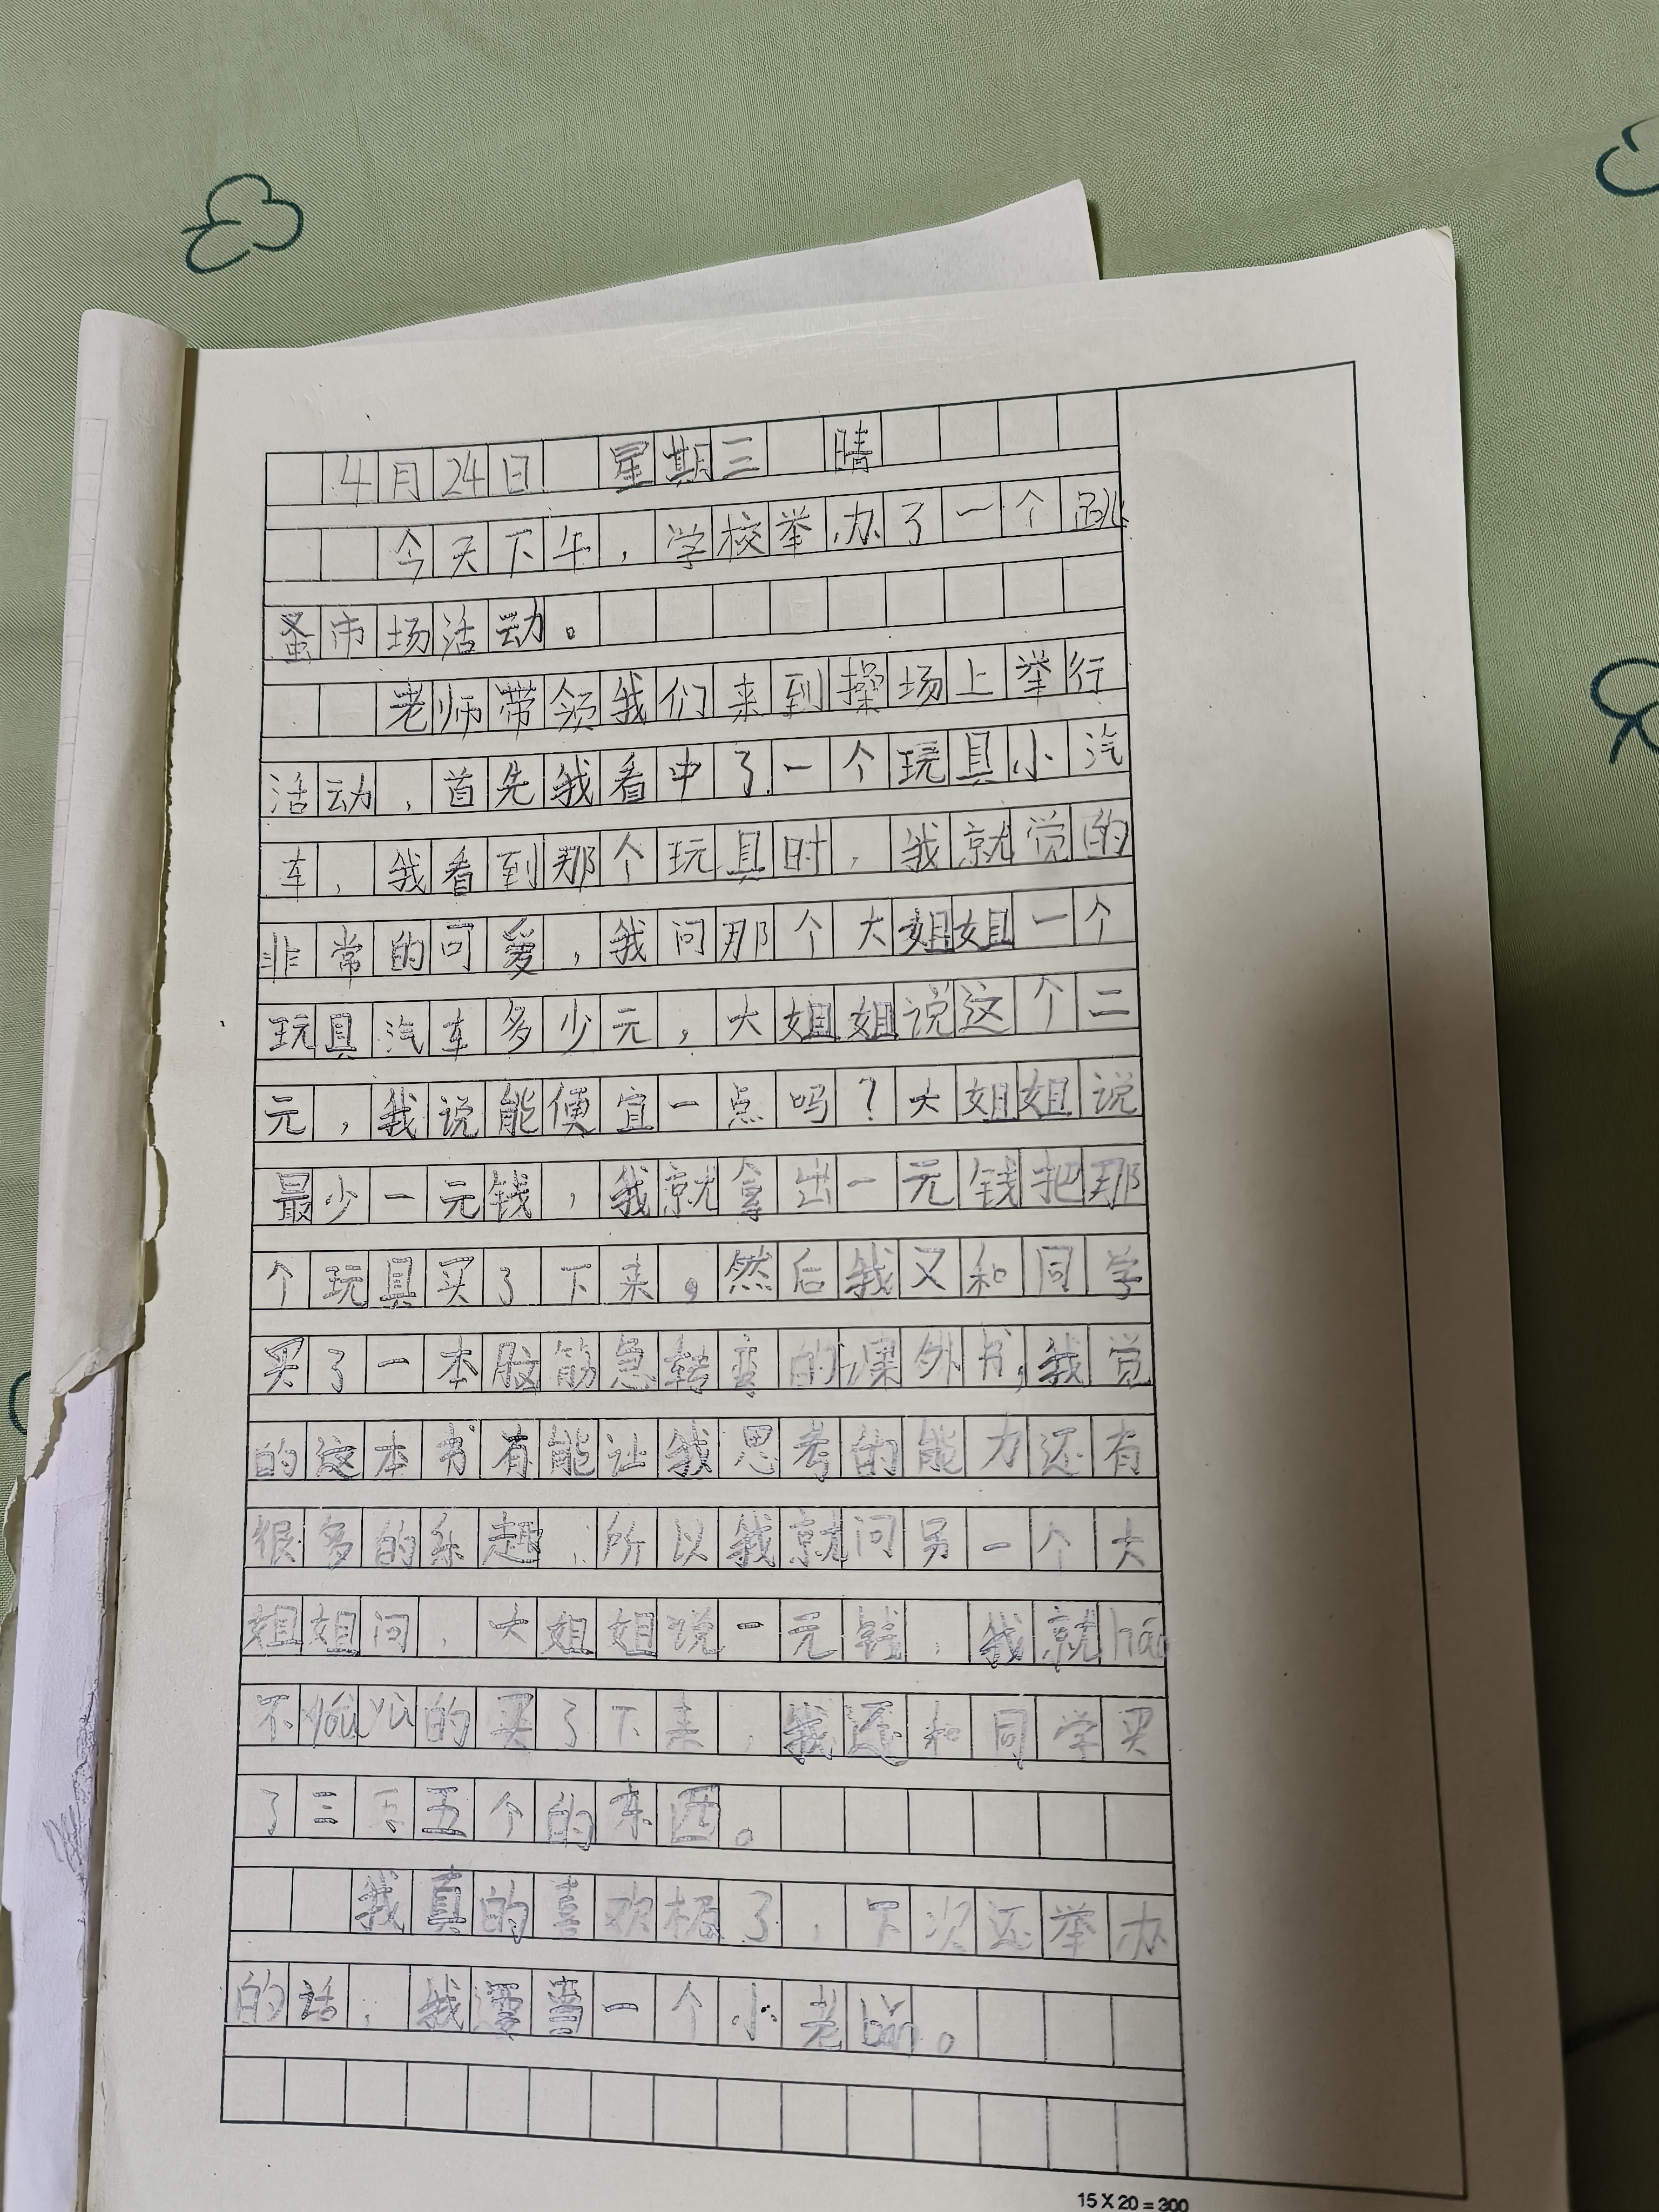 4月24日 星期三 晴
今天下午，学校举办了一个跳
蚤市场活动。
老师带领我们来到操场上举行
活动，首先我看中了一个玩具小汽
车，我看到那个玩具时，我就觉的
非常的可爱，我问那个大姐姐一个
玩具汽车多少元，大姐姐说这个二
元，我说能便宜一点吗？大姐姐说
最少一元钱，我就拿出一元钱把那
个玩具买了下来。然后我又和同学
买了一本脑筋急转弯的课外书，我觉
的这本书有能让我思考的能力还有
很多的乐趣，所以我就问另一个大
姐姐问，大姐姐说一元钱，我就háo
不犹的买了下来，我还和同学买
了三五个的东西。
我真的喜欢极了，下次还举办
的话，我要当一个小老bǎn。
15×20=300